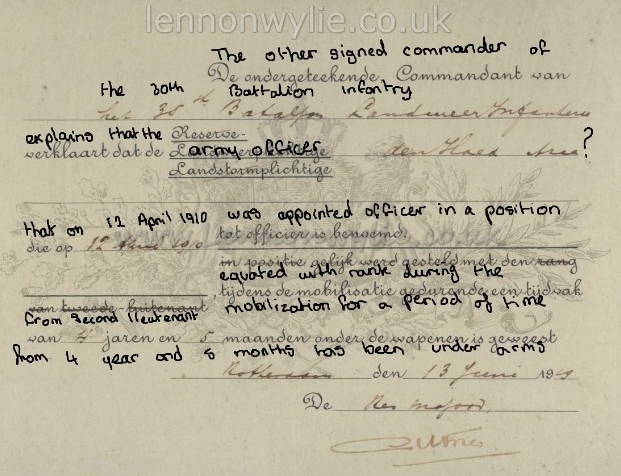 lennonwylie.co.uk
The other signed commander of
De ondergeteekende, Commandant van
the 30th Battalion infantry
het 30th Bataljon Landweer Infanterie
explains that the Reserve-
verklaart dat de army officer den Hoed ?
Landstormplichtige
that on 12 April 1910 was appointed officer in a position
die op 12 April 1910 tot officier is benoemd,
in positie gelijk werd gesteld met den rang
equated with rank during the
van tweede-luitenant, tijdens de mobilisatie gedurende een tijdvak
from second lieutenant mobilization for a period of time
van 4 jaren en 5 maanden onder de wapenen is geweest
from 4 year and 5 months has been under arms
Rotterdam den 13 Juni 1919
De Res